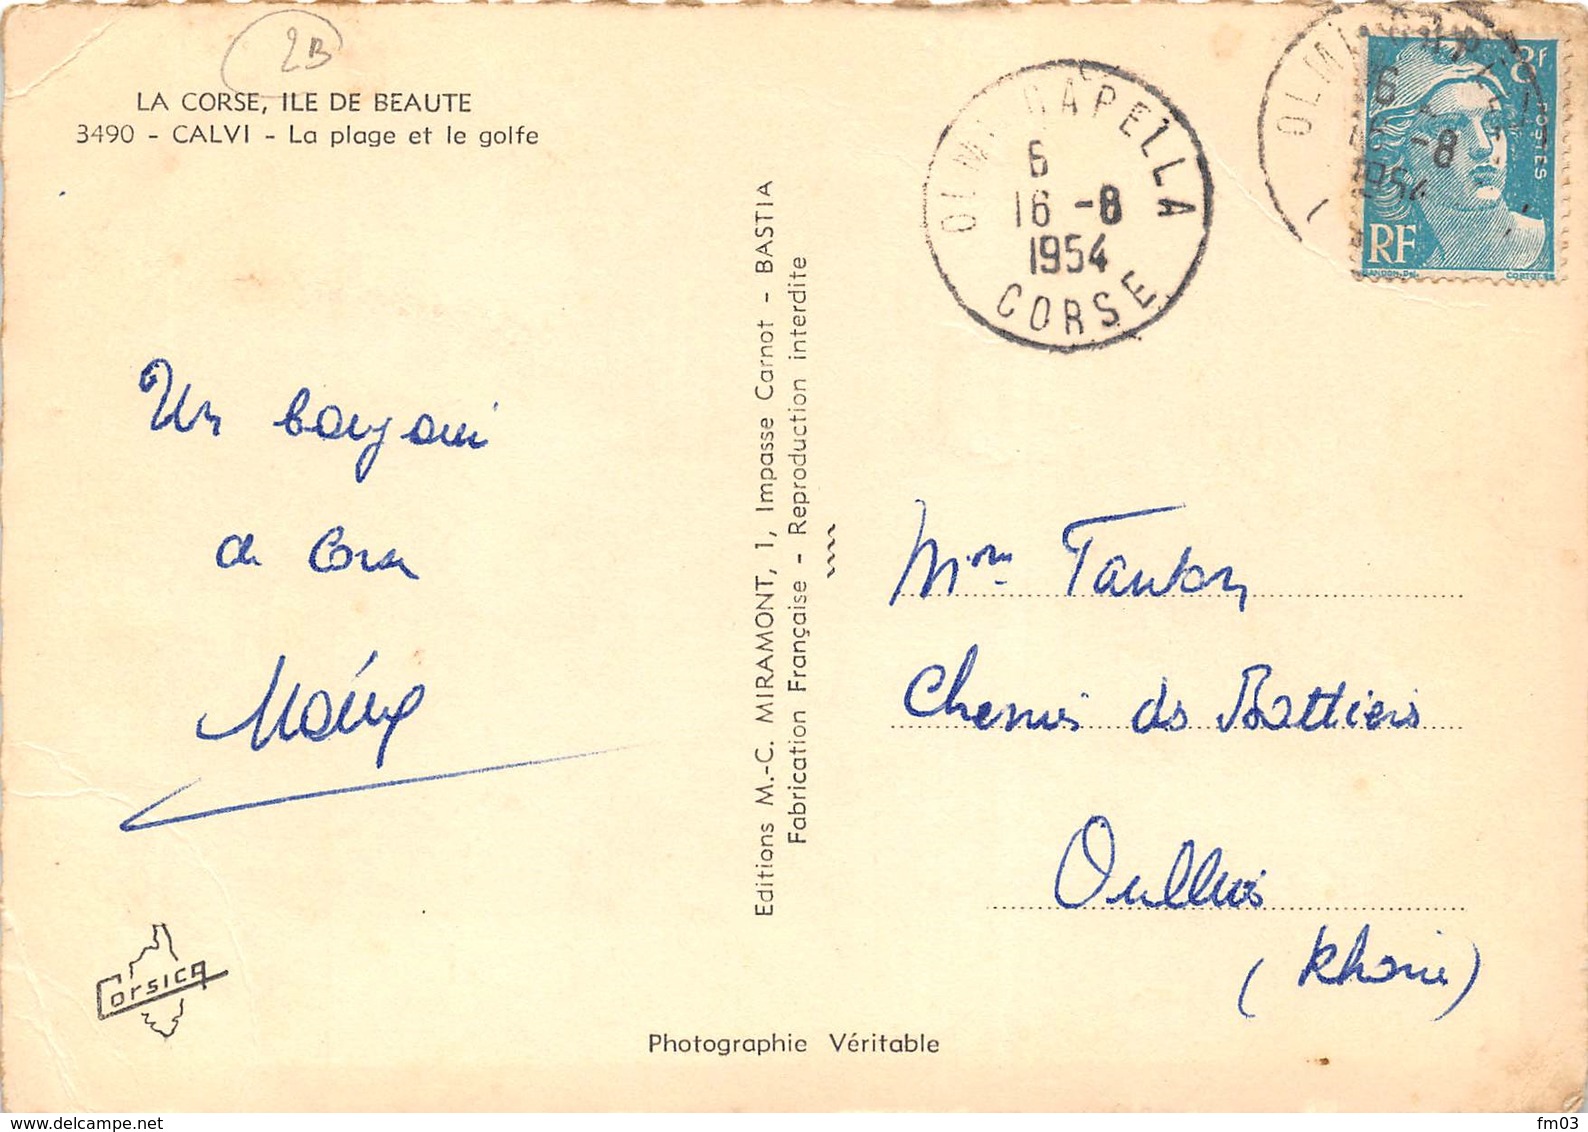 2B
LA CORSE, ILE DE BEAUTE
3490 - CALVI - La plage et le golfe
Un bonjour
de Corse
Editions M.-C. MIRAMONT, 1, Impasse Carnot - BASTIA
Fabrication Française - Reproduction interdite
OLMI CAPELLA
6
16 -8
1954
CORSE
OLMI CAPELLA
6
16 -8
1954
8F
POSTES
RF
GANDON
CORTOT
Mme
Chemin des Battières
Oullins
(Rhône)
Corsica
Photographie Véritable
fm03